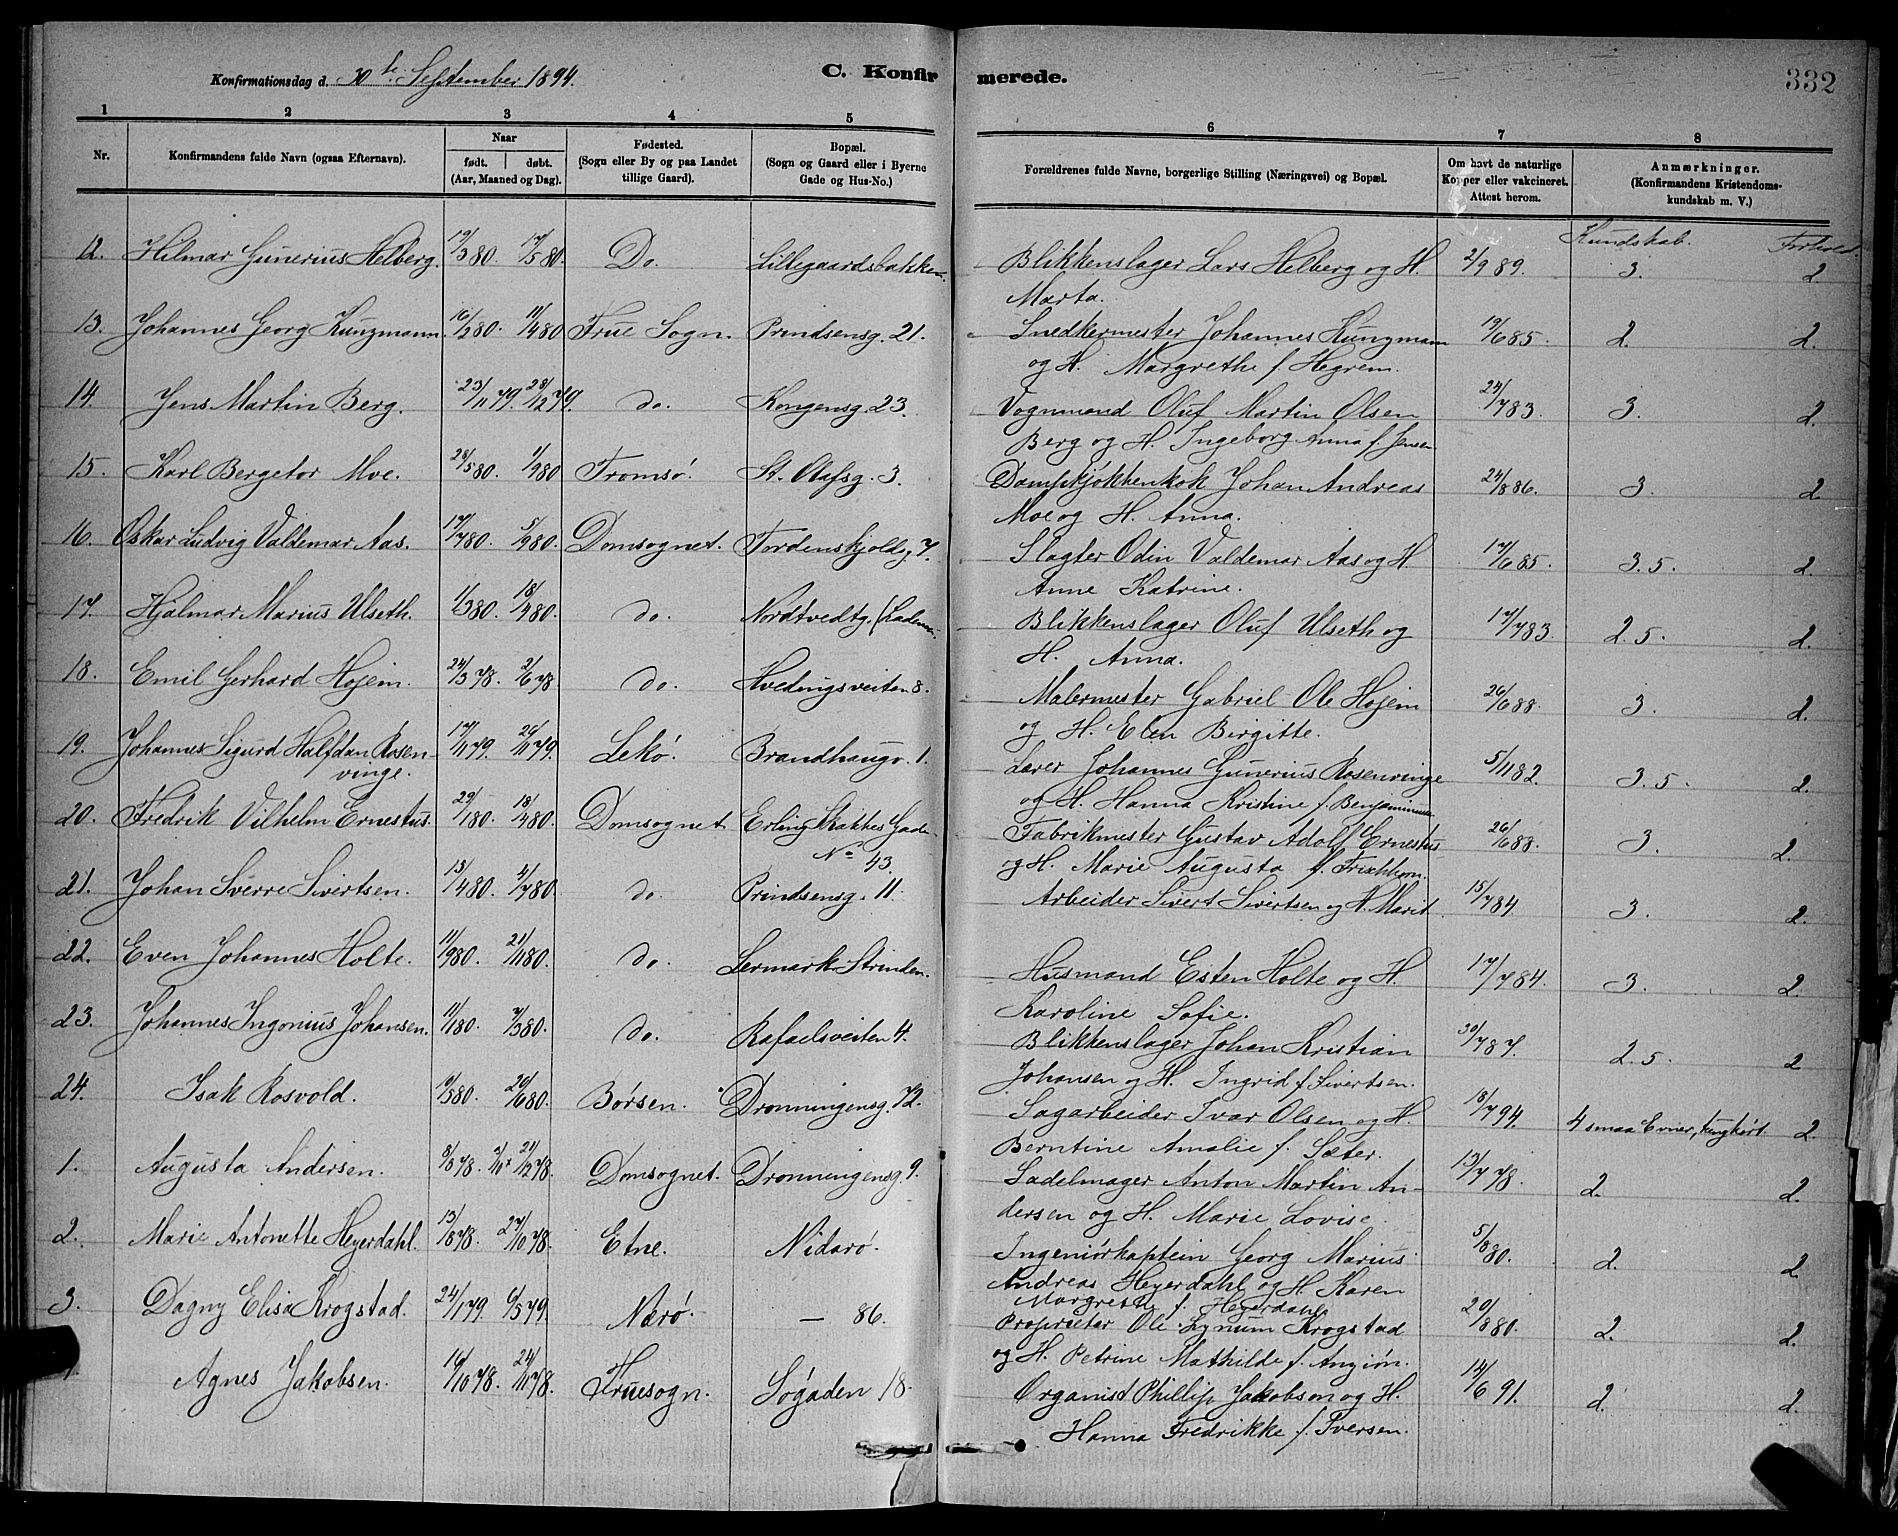 Konfirmationsdag d. 30te September 1894.
C. Konfirmerede.
332
1 2 3 4 5 6 7 8
Nr.
Konfirmandens fulde Navn (ogsaa Efternavn).
Naar
født. døbt.
(Aar, Maaned og Dag).
Fødested.
(Sogn eller By og paa Landet
tillige Gaard).
Bopæl.
(Sogn og Gaard eller i Byerne
Gade og Hus-No.)
Forældrenes fulde Navne, borgerlige Stilling (Næringsvei) og Bopæl.
Om havt de naturlige
Kopper eller vakcineret.
Attest herom.
Anmærkninger.
(Konfirmandens Kristendoms-
kundskab m. V.)
Kundskab. Forhold.
12. Hilmar Gunerius Helberg. 19/3 80. 17/5 80. Do. Lillegaardsbakken. Blikkenslager Lars Helberg og H. 2/9 89. 3. 2
Marta.
13. Johannes Georg Kunzmann. 16/2 80. 11/4 80 Frue Sogn. Prindsensg. 21. Snedkermester Johannes Kunzmann 19/6 85. 2. 2.
og H. Margrethe f. Hegrem.
14. Jens Martin Berg. 23/11 79. 28/12 79. do. Kongensg. 23. Vognmand Oluf Martin Olsen 24/7 83. 3. 2.
Berg og H. Ingeborg Anna f. Jensen
15. Karl Bergetor Moe. 28/5 80. 1/9 80 Tromsø. St. Olafsg. 3. Dampkjøkkenkok Johan Andreas 24/8 86. 3. 2
Moe og H. Anna.
16. Oskar Ludvig Valdemar Aas. 17/7 80. 5/9 80. Domsognet. Tordenskjoldsg. 7. Slagter Odin Valdemar Aas og H. 17/6 85. 3.5. 2.
Anne Katrine.
17. Hjalmar Marius Ulseth. 1/3 80. 18/4 80. do. Nordtvedtg. Blikkenslager Oluf Ulseth og 17/7 83. 2.5. 2.
H. Anna.
18. Emil Gerhard Hojem. 24/3 78. 2/6 78 do. Hvedingsveiten 8. Malermester Gabriel Ole Hojem 26/6 88. 3. 2.
og H. Elen Birgitte.
19. Johannes Sigurd Halfdan Rosen- 17/11 79. 29/11 79. Lekø. Brandhaugv. 1. Lærer Johannes Gunerius Rosenvinge 5/11 82. 3.5. 2.
vinge. og H. Hanna Kristine f. Benjaminsen
20. Fredrik Vilhelm Ernestus. 29/1 80. 18/4 80. Domsognet Erling Skakkes Gade Fabrikmester Gustav Adolf Ernestus 26/6 88. 3. 2.
No 43. og H. Marie Augusta f.
21. Johan Sverre Sivertsen. 13/4 80. 4/7 80. do. Prindsensg. 11. Arbeider Sivert Sivertsen og H. Marit. 15/7 84. 3. 2.
22. Even Johannes Holte. 11/9 80. 21/11 80. do. Lermark Strinden. Husmand Esten Holte og H. 17/7 84. 3. 2.
Karoline Sofie.
23. Johannes Ingonius Johansen. 11/1 80. 7/3 80. do. Rafaelsveiten 4. Blikkenslager Johan Kristian 30/7 87. 2.5. 2
Johansen og H. Ingrid f. Sivertsen.
24. Isak Rosvold. 9/3 80. 20/6 80. Børsen. Dronningensg. 72. Sagarbeider Ivar Olsen og H. 18/7 94. 4 smaa Evner, tunghørt. 2.
Berntine Amalie f. Sæter.
1. Augusta Andersen. 8/8 78. 24/12 78. Domsognet. Dronningensg. 9. Sadelmager Anton Martin An- 13/7 78. 2. 2.
dersen og H. Marie Lovise.
2. Marie Antonette Heyerdahl. 13/8 78. 27/10 78. Etne. Nidarø. Ingeniørkaptein Georg Marius 5/8 80. 2. 2.
Andreas Heyerdahl og H. Karen
Margrethe f. Heyerdahl
3. Dagny Elisa Krogstad. 24/1 79. 6/5 79. Nærø. — 86. Proprietær Ole Lynum Krogstad 20/8 80. 2. 2.
og H. Petrine Mathilde f. Anzjøn.
Agnes Jakobsen. 16/10 78. 24/11 78. Fruesogn. Søgaden 18. Organist Phillip Jakobson og H. 14/6 91. 2. 2.
Hanna Fredrikke f. Iversen.